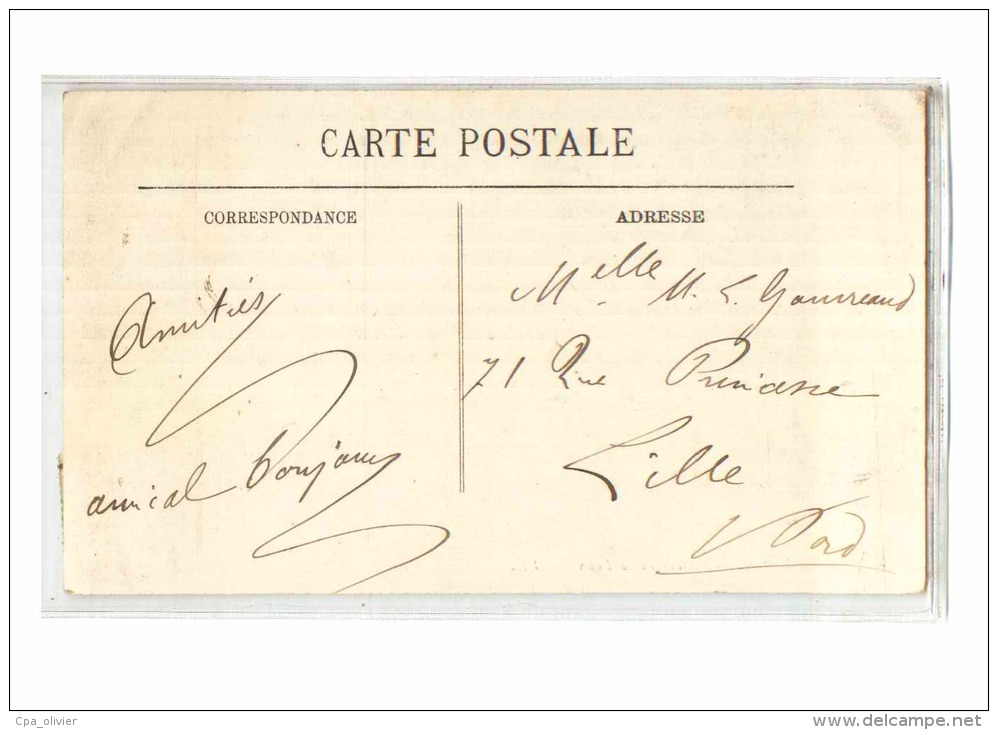 CARTE POSTALE
CORRESPONDANCE
ADRESSE
Amitiés
amical bonjour
Melle M. L. Gouvreaud
71 Rue Princesse
Lille
Nord
Cpa_olivier
www.delcampe.net